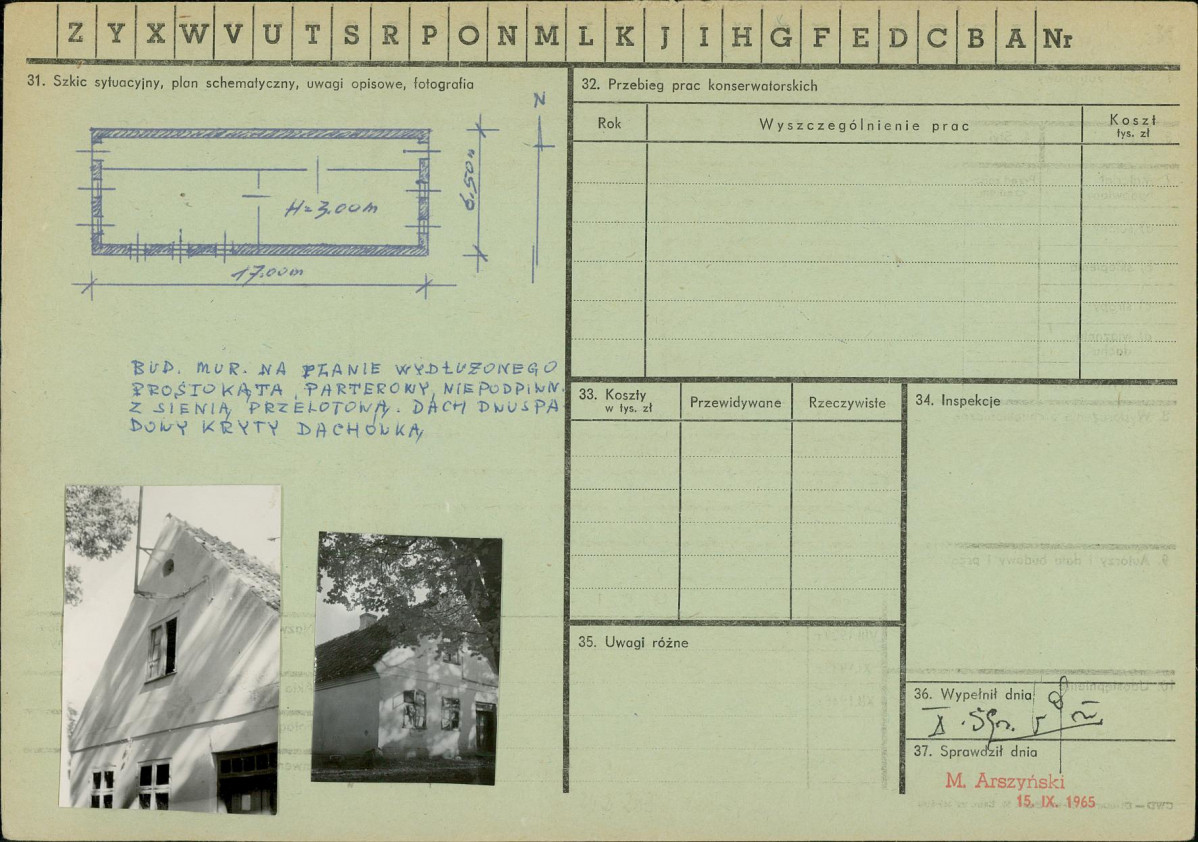 Z Y X W V U T S R P O N M L K J I H G F E D C B A Nr
31. Szkic sytuacyjny, plan schematyczny, uwagi opisowe, fotografia
N
6.50m
H=3.00m
17.00m
BUD. MUR. NA PLANIE WYDŁUŻONEGO
PROSTOKĄTA, PARTEROWY, NIEPODPIWN.
Z SIENIĄ PRZELOTOWĄ. DACH DWUSPA
DOWY KRYTY DACHÓWKĄ
32. Przebieg prac konserwatorskich
Rok
Wyszczególnienie prac
Koszt
tys. zł
33. Koszty
w tys. zł
Przewidywane
Rzeczywiste
34. Inspekcje
35. Uwagi różne
36. Wypełnił dnia
X. 59r.
37. Sprawdził dnia
M. Arszyński
15. IX. 1965